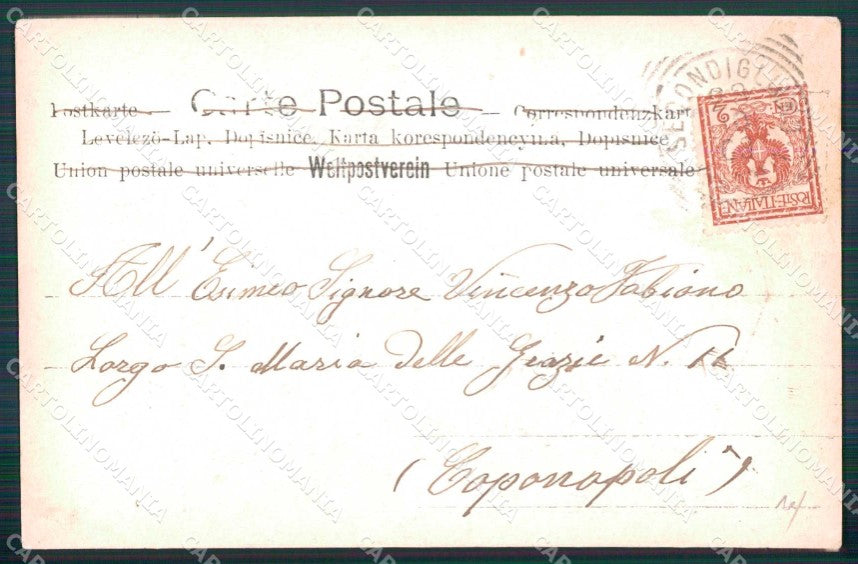 Carte Postale
Postkarte — Correspondenzkart
Levelező-Lap. Dopisnice. Karta korespondencyjna, Dopisnice
Union postale universelle Weltpostverein Unione postale universale
SECONDIGLI
POSTE·ITALIANE
CEN. 2
All' Esimeo Signore Vincenzo Fabiono
Largo S. Maria delle Grazie N.
(Coponapoli)
CARTOLINOMANIA